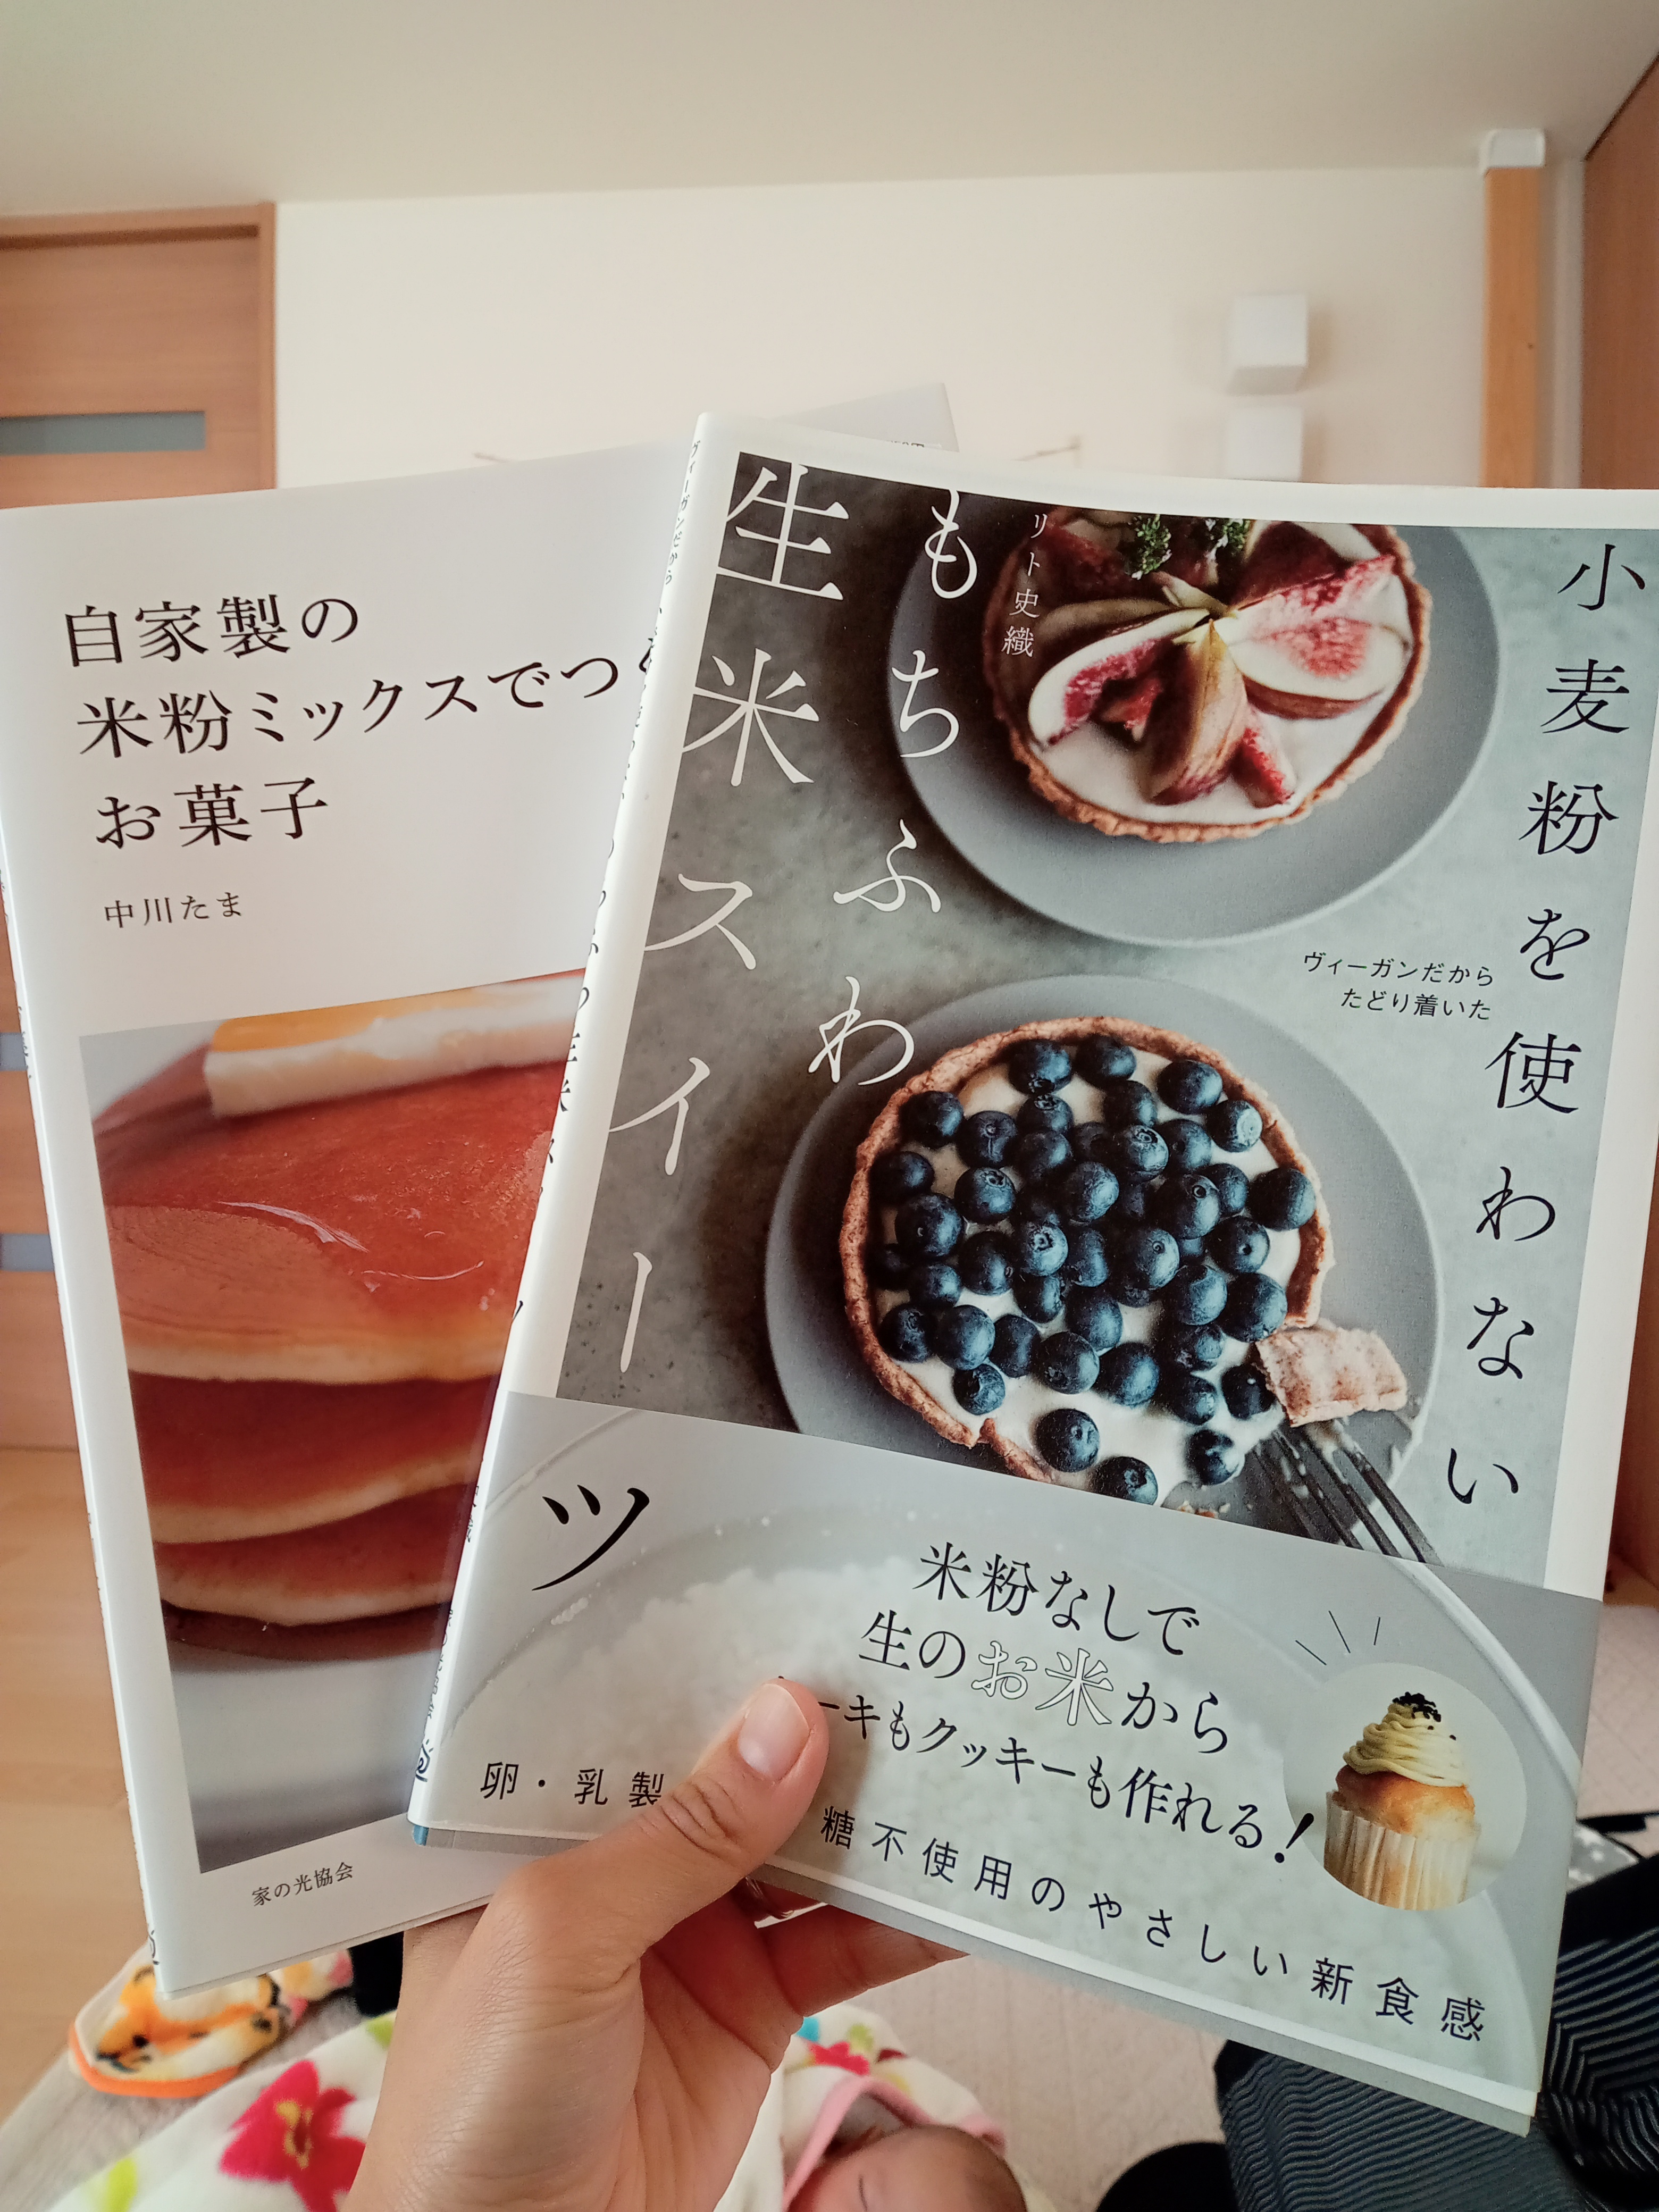 自家製の
米粉ミックスでつ
お菓子
中川たま
家の光協会
小麦粉を使わない
ヴィーガンだから
たどり着いた
リト史織
もちふわ
生米スイーツ
米粉なしで
生のお米から
ーキもクッキーも作れる!
卵・乳製
糖不使用のやさしい新食感
ヴィーガンだから